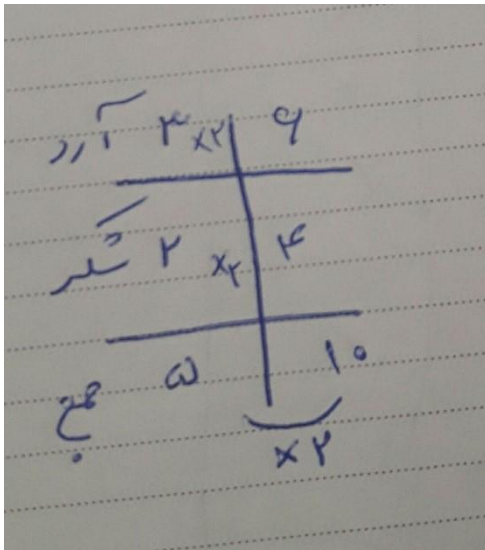 آرد ۳ ×۲ ۶
شکر ۲ ×۲ ۴
جمع ۵ ۱۰
×۲